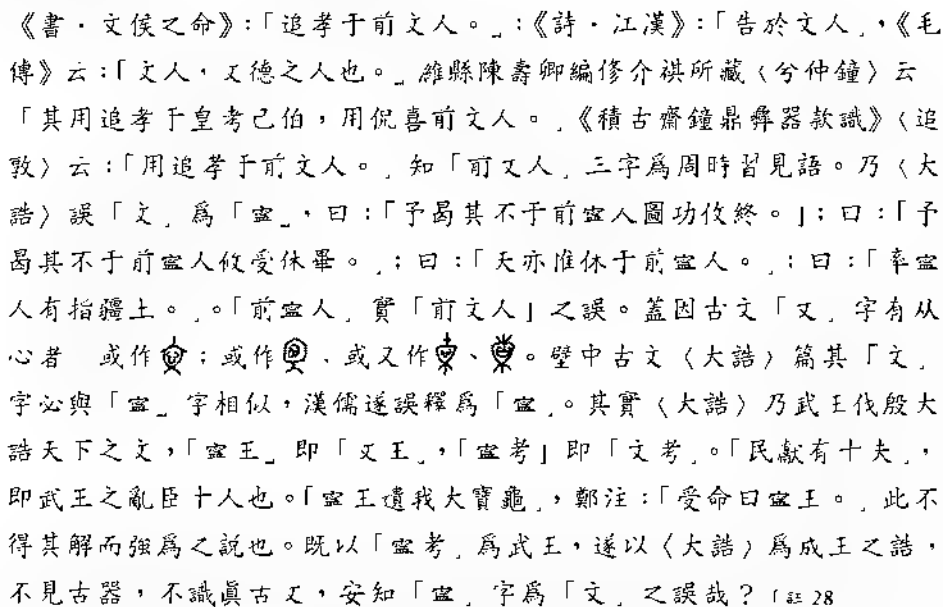 《書·文侯之命》:「追孝于前文人。」:《詩·江漢》:「告於文人」,《毛
傳》云:「文人,文德之人也。」濰縣陳壽卿編修介祺所藏〈兮仲鐘〉云
「其用追孝于皇考己伯,用侃喜前文人。」《積古齋鐘鼎彝器款識》〈追
敦〉云:「用追孝于前文人。」知「前文人」三字爲周時習見語。乃〈大
誥〉誤「文」爲「寍」,曰:「予曷其不于前寍人圖功攸終。」;曰:「予
曷其不于前寍人攸受休畢。」;曰:「天亦惟休于前寍人。」;曰:「率寍
人有指疆土。」。「前寍人」實「前文人」之誤。蓋因古文「文」字有从
心者 或作;或作、或又作、。壁中古文〈大誥〉篇其「文」
字必與「寍」字相似,漢儒遂誤釋爲「寍」。其實〈大誥〉乃武王伐殷大
誥天下之文,「寍王」即「文王」,「寍考」即「文考」。「民獻有十夫」,
即武王之亂臣十人也。「寍王遺我大寶龜」,鄭注:「受命曰寍王。」此不
得其解而強爲之說也。既以「寍考」爲武王,遂以〈大誥〉爲成王之誥,
不見古器,不識眞古文,安知「寍」字爲「文」之誤哉?「註 28